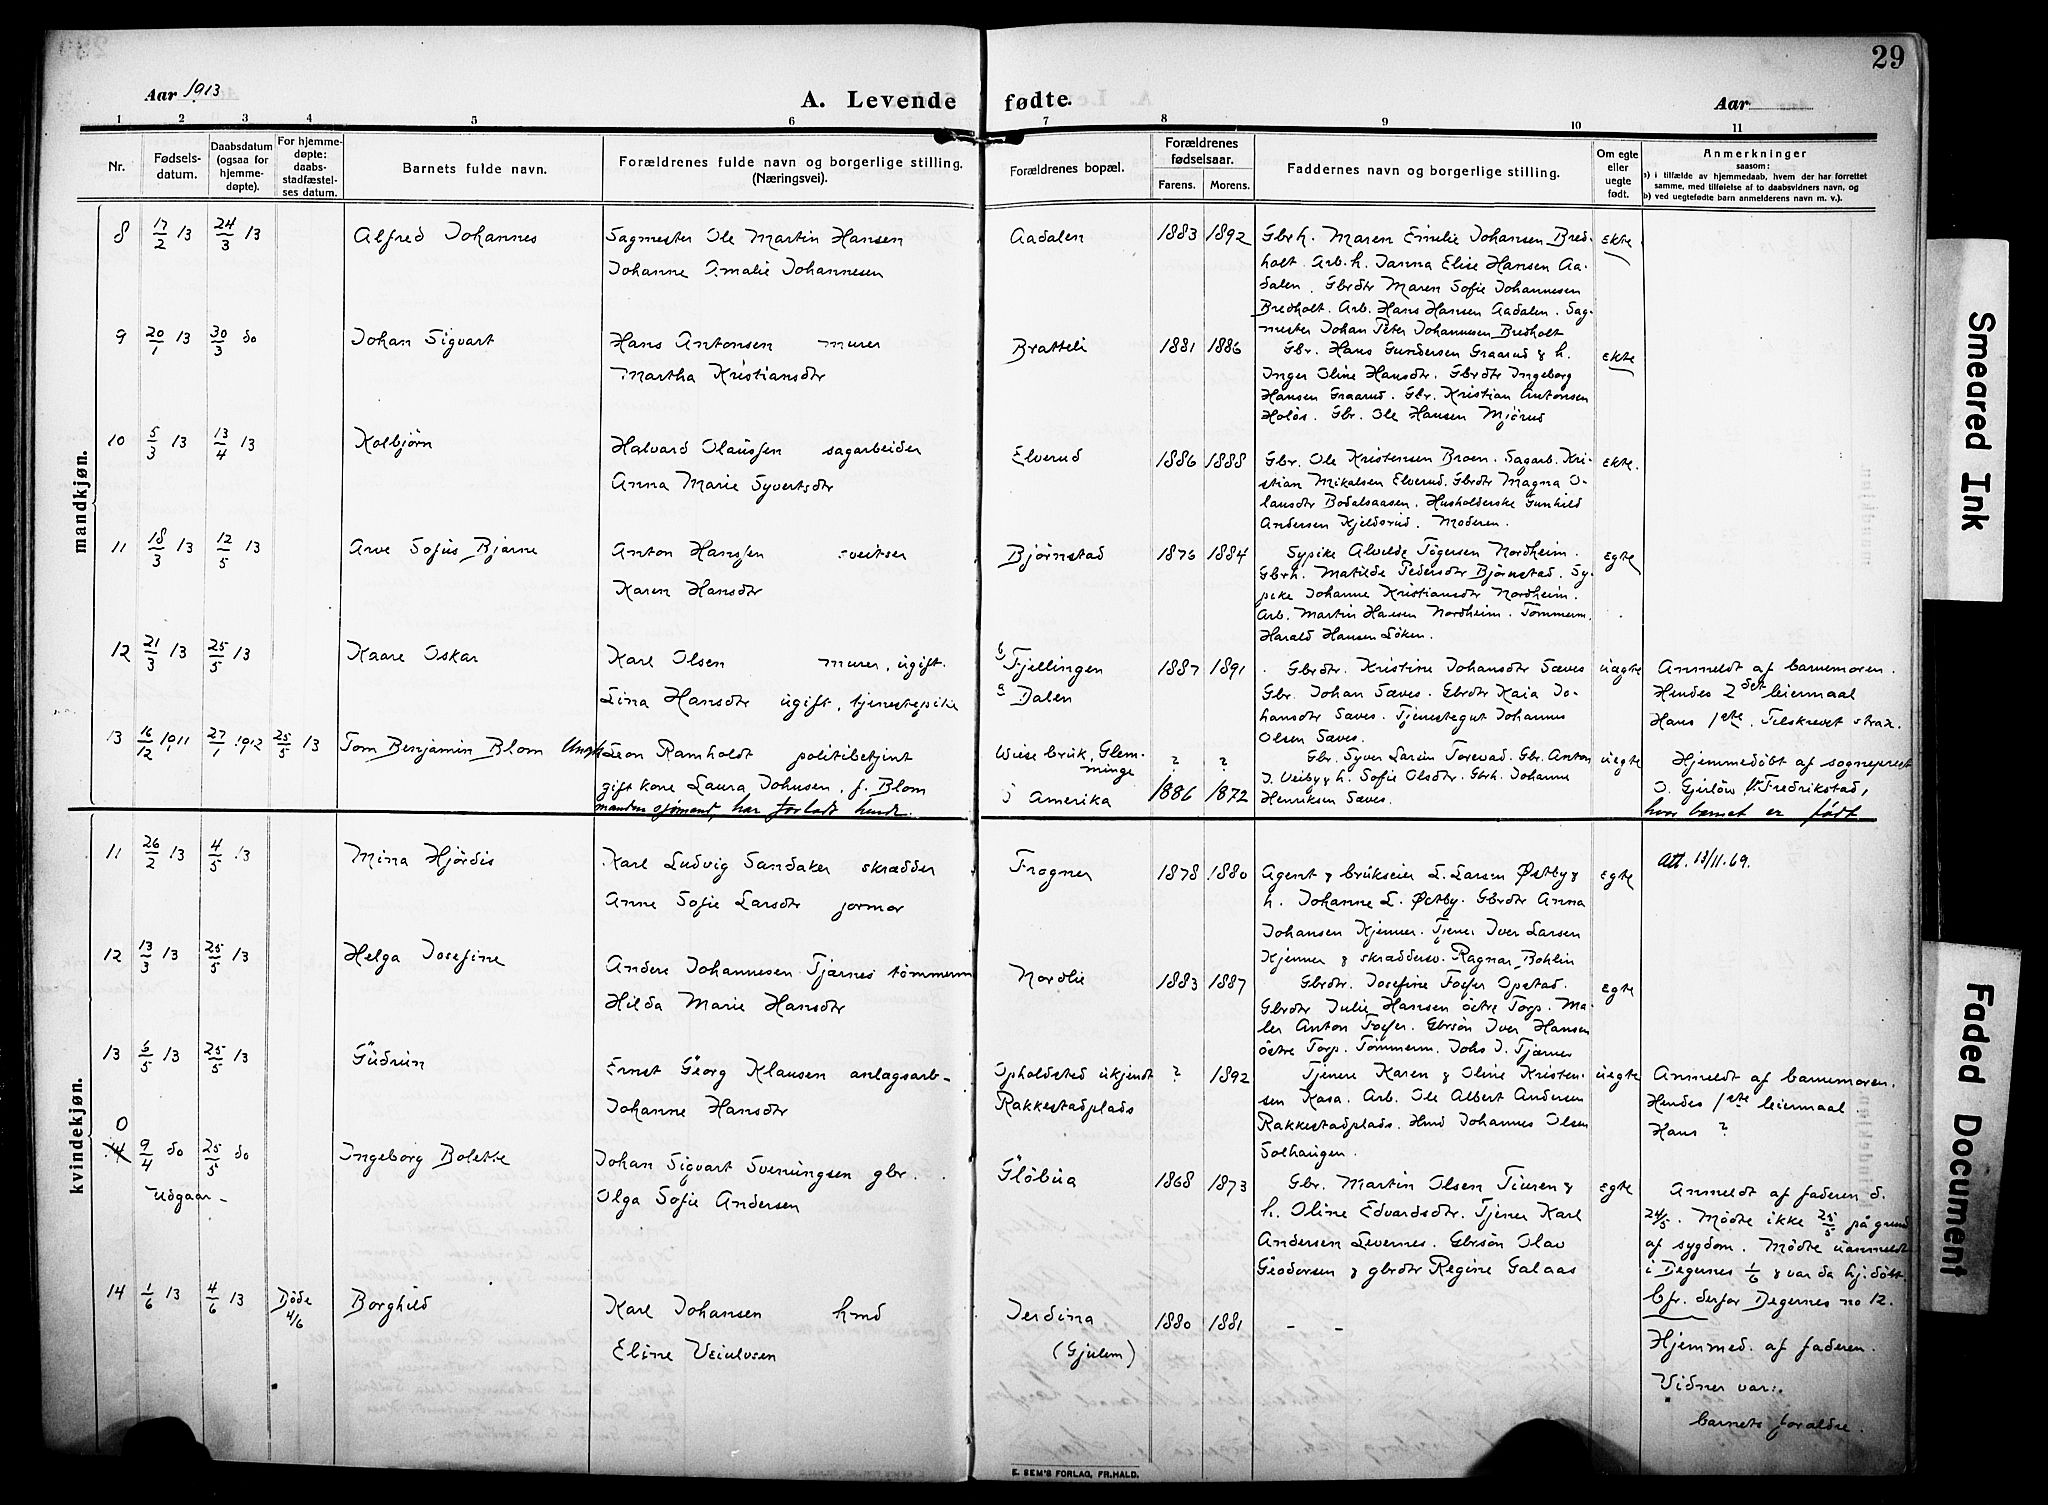 29
Aar 1913
A. Levende fødte.
Aar
1 2 3 4 5 6 7 8 9 10 11
Nr.
Fødsels-
datum.
Daabsdatum
(ogsaa for
hjemme-
døpte).
For hjemme-
døpte:
daabs-
stadfæstel-
ses datum.
Barnets fulde navn.
Forældrenes fulde navn og borgerlige stilling.
(Næringsvei).
Forældrenes bopæl.
Forældrenes
fødselsaar.
Farens. Morens.
Faddernes navn og borgerlige stilling.
Om egte
eller
uegte
født.
Anmerkninger
saasom:
a) i tilfælde av hjemmedaab, hvem der har forrettet
samme, med tilføielse af to daabsvidners navn, og
b) ved uegtefødte barn anmelderens navn m. v.).
mandkjøn.
8 17/2 13 24/3 13 Alfred Johannes
Sagmester Ole Martin Hansen
Johanne Amalie Johannesen
Aadalen 1883 1892
Gbrh. Maren Emelie Johansen Bred-
holt. Arb.h. Janna Elise Hansen Aa-
dalen. Gbrdtr Maren Sofie Johannesen
Bredholt. Arb. Hans Hansen Aadalen. Sag-
mester Johan Peter Johannesen Bredholt
Ekte
9 20/1 13 30/3 do Johan Sigvart
Hans Antonsen murer
Martha Kristiansdtr
Bratteli 1881 1886
Gbr. Hans Gundersen Graarud & h.
Inger Oline Hansdtr. Gbrdtr Ingeborg
Hansen Graarud. Gbr. Kristian Antonsen
Holøs. Gbr. Ole Hansen Mjørud
Ekte
10 5/3 13 13/4 13 Kolbjørn
Halvard Olaussen sagarbeider
Anna Marie Syvertsdtr
Elverud 1886 1888
Gbr. Ole Kristensen Broen. Sagarb. Kri-
stian Mikalsen Elverud. Gbrdtr Magna O-
lausdtr Bodalsaasen. Husholderske Gunhild
Andersen Kjeldsrud. Moderen.
Ekte.
11 18/3 13 12/5 13 Arve Sofus Bjarne
Anton Hanssen sveitser
Karen Hansdtr
Bjørnstad 1876 1884
Sypike Alvilde Tøgersen Nordheim.
Gbrh. Matilde Pedersdtr Bjørnstad. Sy-
pike Johanne Kristiansdtr Nordheim.
Arb. Martin Hansen Nordheim. Tømmerm.
Harald Hansen Løken.
Egte
12 21/3 13 25/5 13 Kaare Oskar
Karl Olsen murer, ugift.
Lina Hansdtr ugift, tjenestepike
Fjellingen
Dalen
1887 1891
Gbrdtr. Kristine Johansdtr Sæves
Gbr. Johan Sæves. Gbrdtr Kaia Jo-
hansdtr Sæves. Tjenestegut Johannes
Olsen Sæves.
uægte
Anmeldt af barnemoren.
Hendes 2det leiermaal
Hans 1ste. Tilskrevet strax.
13 16/12 1911 27/1 1912 25/5 13 Tom Benjamin Blom
Leon Ramholdt politibetjent
gift kone Laura Johnsen, f. Blom
manden sjømand, har forladt hende.
Wiese bruk, Glem-
minge
i Amerika
? ?
1886 1872
Gbr. Syver Larsen Torevad. Gbr. Anton
J. Veiby & h. Sofie Olsdtr. Gbrh. Johanne
Henriksen Sæves.
uegte
Hjemmedöbt af sogneprest
J. Gjerløw v/ Fredrikstad,
hvor barnet er født.
kvindekjøn.
11 26/2 13 4/5 13 Mina Hjördis
Karl Ludvig Sandaker skrædder
Anne Sofie Larsdtr jormor
Frogner 1878 1880
Agent & brukseier L. Larsen Østby &
h. Johanne L. Østby. Gbrdtr Anna
Johansen Kjenner. Tjener Iver Larsen
Kjenner & skræddersv. Ragnar Bohlin
Egte
Att. 13/11.69.
12 13/3 13 25/5 13 Helga Josefine
Anders Johannesen Tjærnes tømmerm
Hilda Marie Hansdtr
Nordlie 1883 1887
Gbrdtr. Josefine Fosser Opstad.
Gbrdtr Julie Hansen östre Torp. Ma-
ler Anton Fosser. Gbrsön Iver Hansen
östre Torp. Tømmerm. Johs J. Tjærnes
Egte
13 6/5 13 25/5 13 Gudrun
Ernst Georg Klausen anlagsarb-
Johanne Hansdtr
Opholdsted ukjendt
Rakkestadplads
? 1892
Tjenere Karen & Oline Kristen-
sen Kasa. Arb. Ole Albert Andersen
Rakkestadplads. Hmd Johannes Olsen
Solhaugen.
uegte
Anmeldt af barnemoren.
Hendes 1ste leiermaal
Hans ?
0
14 9/4 do 25/5 do Ingeborg Bolette
-udgaar-
Johan Sigvart Svenningsen gbr.
Olga Sofie Andersen
Gløbua 1868 1873
Gbr. Martin Olsen Tiuren &
h. Oline Edvardsdtr. Tjener Karl
Andersen Levernes. Gbrsön Olav
Geodorsen & gbrdtr Regine Galaas
Egte
Anmeldt af faderen d.
24/5. Mödte ikke 25/5 på grund
af sygdom. Mödte uanmeldt
i Degernes 1/6 & var da hj.döbt.
Cfr. derfor Degernes no 12.
14 1/6 13 4/6 13 Döde
4/6
Borghild
Karl Johansen hmd
Eline Veiulvsen
Jerdina
(Gjulem)
1880 1881
- -
Hjemmed. af faderen.
Vidner var:
barnets foraldre.
E. SEM'S FORLAG, FR.HALD.
Smeared Ink
Faded Document